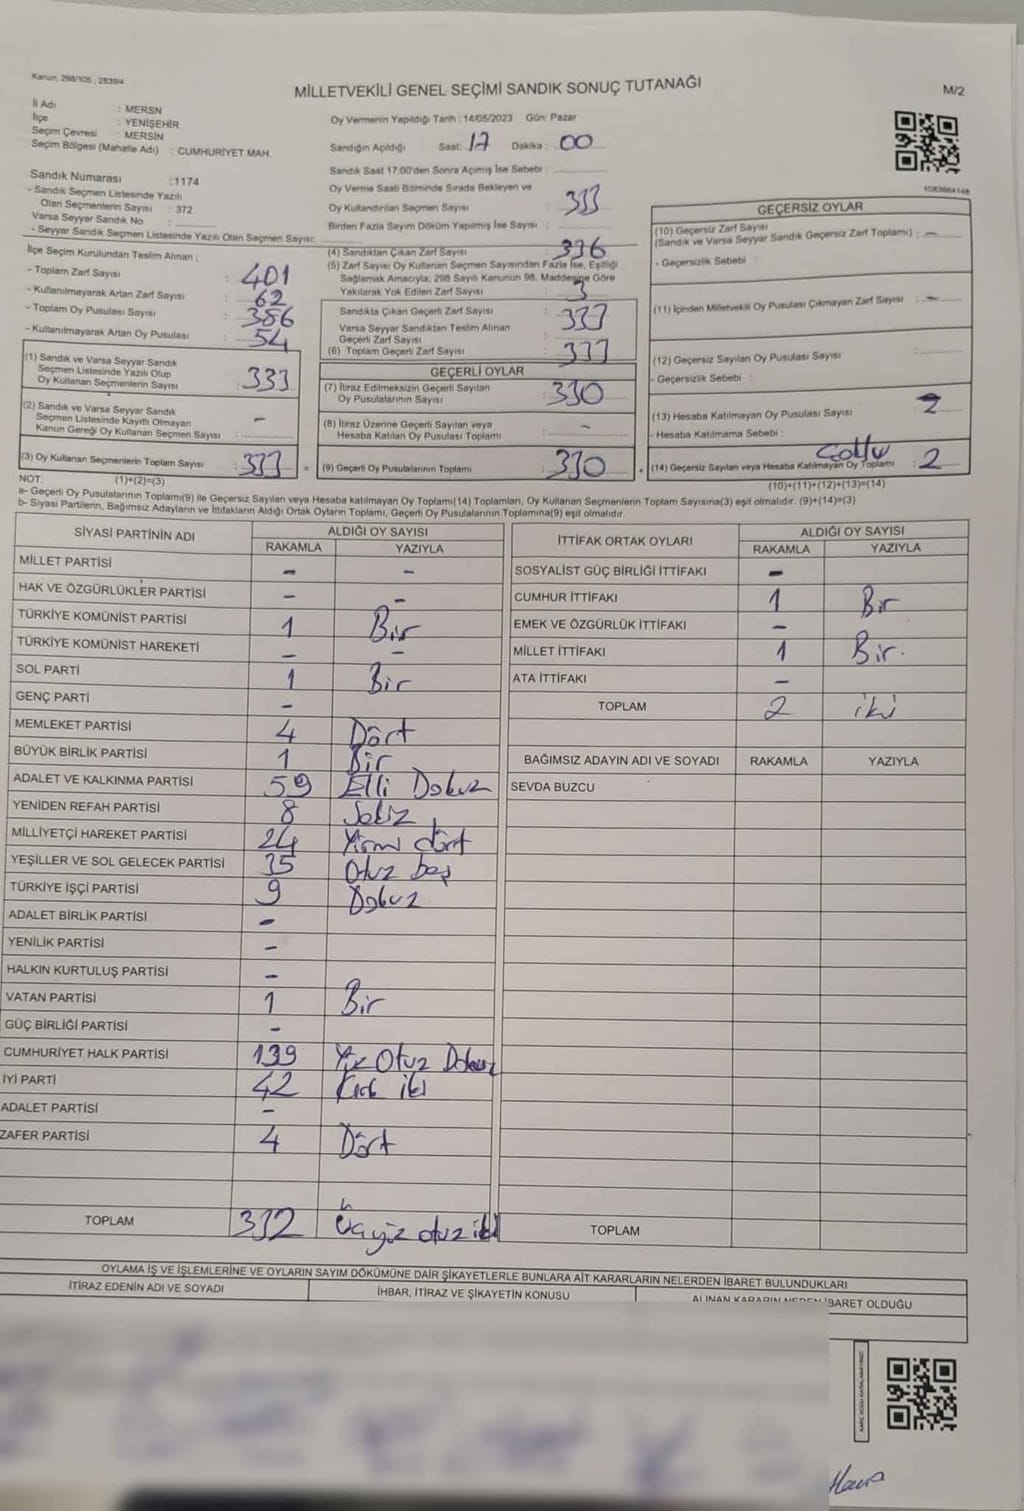 Kanun: 298/105, 2839/4
MİLLETVEKİLİ GENEL SEÇİMİ SANDIK SONUÇ TUTANAĞI
M/2
İl Adı : MERSN
İlçe : YENİŞEHİR
Seçim Çevresi : MERSİN
Seçim Bölgesi (Mahalle Adı) : CUMHURİYET MAH.
Sandık Numarası :1174
- Sandık Seçmen Listesinde Yazılı
Olan Seçmenlerin Sayısı : 372
Varsa Seyyar Sandık No :
- Seyyar Sandık Seçmen Listesinde Yazılı Olan Seçmen Sayısı:
İlçe Seçim Kurulundan Teslim Alınan ;
- Toplam Zarf Sayısı : 401
- Kullanılmayarak Artan Zarf Sayısı : 62
- Toplam Oy Pusulası Sayısı : 386
- Kullanılmayarak Artan Oy Pusulası : 54
(1) Sandık ve Varsa Seyyar Sandık
Seçmen Listesinde Yazılı Olup
Oy Kullanan Seçmenlerin Sayısı : 333
(2) Sandık ve Varsa Seyyar Sandık
Seçmen Listesinde Kayıtlı Olmayan
Kanun Gereği Oy Kullanan Seçmen Sayısı : -
(3) Oy Kullanan Seçmenlerin Toplam Sayısı : 333
(1)+(2)=(3)
Oy Vermenin Yapıldığı Tarih : 14/05/2023 Gün: Pazar
Sandığın Açıldığı Saat: 17 Dakika : 00
Sandık Saat 17.00'den Sonra Açımış İse Sebebi :
Oy Verme Saati Bitiminde Sırada Bekleyen ve
Oy Kullandırılan Seçmen Sayısı : 333
Birden Fazla Sayım Döküm Yapılmış İse Sayısı :
(4) Sandıktan Çıkan Zarf Sayısı : 336
(5) Zarf Sayısı Oy Kullanan Seçmen Sayısından Fazla İse, Eşitliği
Sağlamak Amacıyla; 298 Sayılı Kanunun 98. Maddesine Göre
Yakılarak Yok Edilen Zarf Sayısı : 3
Sandıkta Çıkan Geçerli Zarf Sayısı : 333
Varsa Seyyar Sandıktan Teslim Alınan
Geçerli Zarf Sayısı :
(6) Toplam Geçerli Zarf Sayısı : 333
GEÇERLİ OYLAR
(7) İtiraz Edilmeksizin Geçerli Sayılan
Oy Pusulalarının Sayısı : 330
(8) İtiraz Üzerine Geçerli Sayılan veya
Hesaba Katılan Oy Pusulası Toplamı : -
= (9) Geçerli Oy Pusulalarının Toplamı : 330 +
1083664148
GEÇERSİZ OYLAR
(10) Geçersiz Zarf Sayısı
(Sandık ve Varsa Seyyar Sandık Geçersiz Zarf Toplamı) : -
- Geçersizlik Sebebi :
(11) İçinden Milletvekili Oy Pusulası Çıkmayan Zarf Sayısı : -
(12) Geçersiz Sayılan Oy Pusulası Sayısı :
- Geçersizlik Sebebi :
(13) Hesaba Katılmayan Oy Pusulası Sayısı : 2
- Hesaba Katılmama Sebebi :
(14) Geçersiz Sayılan veya Hesaba Katılmayan Oy Toplamı : 2
(10)+(11)+(12)+(13)=(14)
NOT:
a- Geçerli Oy Pusulalarının Toplamı(9) ile Geçersiz Sayılan veya Hesaba katılmayan Oy Toplamı(14) Toplamları, Oy Kullanan Seçmenlerin Toplam Sayısına(3) eşit olmalıdır. (9)+(14)=(3)
b- Siyasi Partilerin, Bağımsız Adayların ve İttifakların Aldığı Ortak Oyların Toplamı, Geçerli Oy Pusulalarının Toplamına(9) eşit olmalıdır.
SİYASİ PARTİNİN ADI ALDIĞI OY SAYISI
RAKAMLA YAZIYLA
MİLLET PARTİSİ - -
HAK VE ÖZGÜRLÜKLER PARTİSİ - -
TÜRKİYE KOMÜNİST PARTİSİ 1 Bir
TÜRKİYE KOMÜNİST HAREKETİ - -
SOL PARTİ 1 Bir
GENÇ PARTİ -
MEMLEKET PARTİSİ 4 Dört
BÜYÜK BİRLİK PARTİSİ 1 Bir
ADALET VE KALKINMA PARTİSİ 59 Elli Dokuz
YENİDEN REFAH PARTİSİ 8 Sekiz
MİLLİYETÇİ HAREKET PARTİSİ 24 Yirmi dört
YEŞİLLER VE SOL GELECEK PARTİSİ 35 Otuz beş
TÜRKİYE İŞÇİ PARTİSİ 9 Dokuz
ADALET BİRLİK PARTİSİ -
YENİLİK PARTİSİ -
HALKIN KURTULUŞ PARTİSİ -
VATAN PARTİSİ 1 Bir
GÜÇ BİRLİĞİ PARTİSİ -
CUMHURİYET HALK PARTİSİ 139 Yüz Otuz Dokuz
İYİ PARTİ 42 Kırk iki
ADALET PARTİSİ -
ZAFER PARTİSİ 4 Dört
TOPLAM 332 Üçyüz otuz iki
İTTİFAK ORTAK OYLARI ALDIĞI OY SAYISI
RAKAMLA YAZIYLA
SOSYALİST GÜÇ BİRLİĞİ İTTİFAKI -
CUMHUR İTTİFAKI 1 Bir
EMEK VE ÖZGÜRLÜK İTTİFAKI -
MİLLET İTTİFAKI 1 Bir.
ATA İTTİFAKI -
TOPLAM 2 iki
BAĞIMSIZ ADAYIN ADI VE SOYADI RAKAMLA YAZIYLA
SEVDA BUZCU
TOPLAM
OYLAMA İŞ VE İŞLEMLERİNE VE OYLARIN SAYIM DÖKÜMÜNE DAİR ŞİKAYETLERLE BUNLARA AİT KARARLARIN NELERDEN İBARET BULUNDUKLARI
İTİRAZ EDENİN ADI VE SOYADI İHBAR, İTİRAZ VE ŞİKAYETİN KONUSU ALINAN KARARIN NEDEN İBARET OLDUĞU